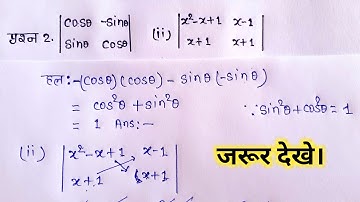 प्रश्न 2. |cosθ -sinθ| (ii) |x²-x+1 x-1|
|sinθ cosθ| |x+1 x+1|
हल:-(cosθ)(cosθ) - sinθ(-sinθ)
= cos²θ + sin²θ ∵ sin²θ+cos²θ = 1
= 1 Ans:-
(ii) |x²-x+1 x-1|
|x+1 x+1|
जरूर देखे।